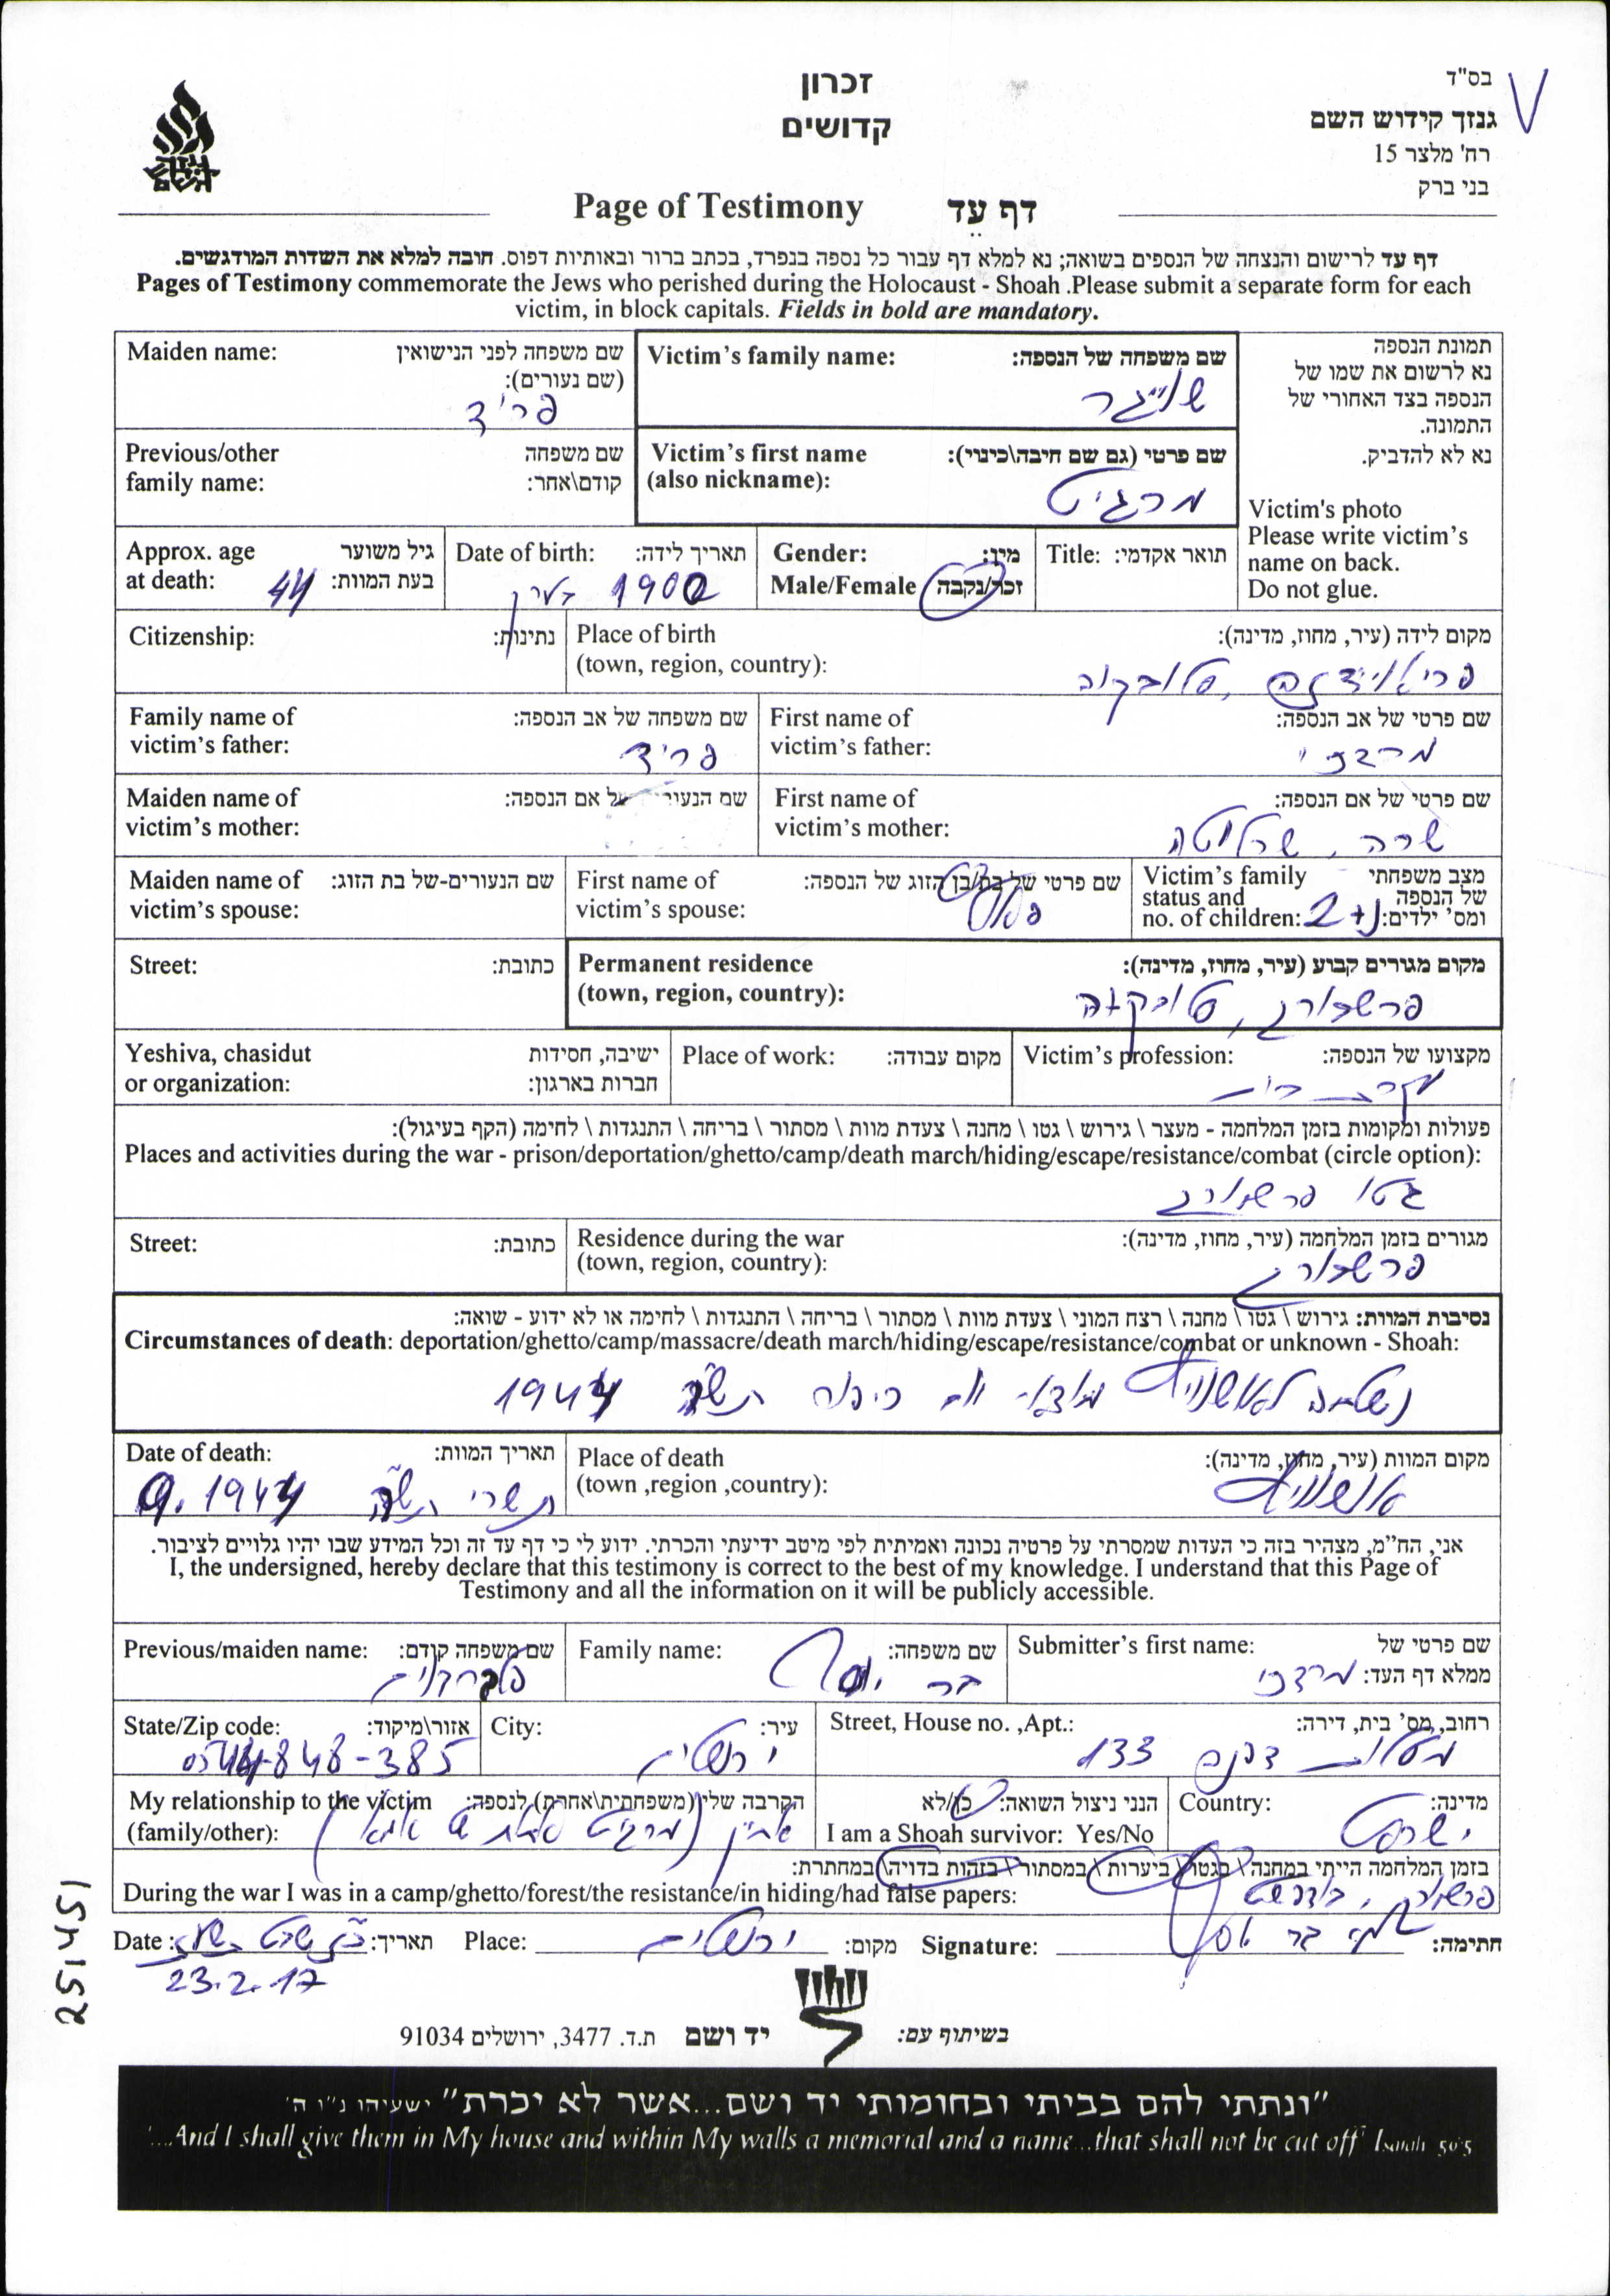 בס"ד
גנזך קידוש השם
רח' מלצר 15
בני ברק
V
זכרון
קדושים
Page of Testimony דף עד
דף עד לרישום והנצחה של הנספים בשואה; נא למלא דף עבור כל נספה בנפרד, בכתב ברור ובאותיות דפוס. חובה למלא את השדות המודגשים.
Pages of Testimony commemorate the Jews who perished during the Holocaust - Shoah .Please submit a separate form for each
victim, in block capitals. Fields in bold are mandatory.
תמונת הנספה
נא לרשום את שמו של
הנספה בצד האחורי של
התמונה.
נא לא להדביק.
Victim's photo
Please write victim's
name on back.
Do not glue.
Victim's family name: שם משפחה של הנספה:
שווייגר
Maiden name: שם משפחה לפני הנישואין
(שם נעורים):
פריד
Victim's first name שם פרטי (גם שם חיבה\כינוי):
(also nickname):
מרגיט
Previous/other שם משפחה
family name: קודם\אחר:
Title: תואר אקדמי:
Gender: מין:
Male/Female זכר/נקבה
Date of birth: תאריך לידה:
1900 בערך
Approx. age גיל משוער
at death: בעת המוות: 44
Place of birth מקום לידה (עיר, מחוז, מדינה):
(town, region, country):
סלובקיה
Citizenship: נתינות:
First name of שם פרטי של אב הנספה:
victim's father:
מרדכי
Family name of שם משפחה של אב הנספה:
victim's father:
פריד
First name of שם פרטי של אם הנספה:
victim's mother:
שרה, שרלוטה
Maiden name of שם הנעורים של אם הנספה:
victim's mother:
Victim's family מצב משפחתי
status and של הנספה
no. of children: ומס' ילדים: נ+2
First name of שם פרטי של בת/בן הזוג של הנספה:
victim's spouse:
Maiden name of שם הנעורים-של בת הזוג:
victim's spouse:
Permanent residence מקום מגורים קבוע (עיר, מחוז, מדינה):
(town, region, country):
פרשבורג, סלובקיה
Street: כתובת:
Victim's profession: מקצועו של הנספה:
עקרת בית
Place of work: מקום עבודה:
Yeshiva, chasidut ישיבה, חסידות
or organization: חברות בארגון:
פעולות ומקומות בזמן המלחמה - מעצר \ גירוש \ גטו \ מחנה \ צעדת מוות \ מסתור \ בריחה \ התנגדות \ לחימה (הקף בעיגול):
Places and activities during the war - prison/deportation/ghetto/camp/death march/hiding/escape/resistance/combat (circle option):
גטו פרשבורג
Residence during the war מגורים בזמן המלחמה (עיר, מחוז, מדינה):
(town, region, country):
פרשבורג
Street: כתובת:
נסיבות המוות: גירוש \ גטו \ מחנה \ רצח המוני \ צעדת מוות \ מסתור \ בריחה \ התנגדות \ לחימה או לא ידוע - שואה:
Circumstances of death: deportation/ghetto/camp/massacre/death march/hiding/escape/resistance/combat or unknown - Shoah:
נשלחה לאושוויץ מוצאי יום כיפור תש"ה 1944
Place of death מקום המוות (עיר, מחוז, מדינה):
(town ,region ,country):
אושוויץ
Date of death: תאריך המוות:
תשרי תש"ה 9.1944
אני, הח"מ, מצהיר בזה כי העדות שמסרתי על פרטיה נכונה ואמיתית לפי מיטב ידיעתי והכרתי. ידוע לי כי דף עד זה וכל המידע שבו יהיו גלויים לציבור.
I, the undersigned, hereby declare that this testimony is correct to the best of my knowledge. I understand that this Page of
Testimony and all the information on it will be publicly accessible.
Submitter's first name: שם פרטי של
ממלא דף העד: מרדכי
Family name: שם משפחה:
בר
Previous/maiden name: שם משפחה קודם:
Street, House no. ,Apt.: רחוב, מס' בית, דירה:
מעלות דפנה 133
City: עיר:
ירושלים
State/Zip code: אזור\מיקוד:
0544-848-385
Country: מדינה:
ישראל
הנני ניצול השואה: כן/לא
I am a Shoah survivor: Yes/No
My relationship to the victim הקרבה שלי (משפחתית\אחרת) לנספה:
(family/other):
אחיין (מרגיט אחות של אמא)
בזמן המלחמה הייתי במחנה\ בגטו\ ביערות\ במסתור\ בזהות בדויה\ במחתרת:
During the war I was in a camp/ghetto/forest/the resistance/in hiding/had false papers:
פרשבורג, בודפשט
חתימה: Signature:
מקום: Place: ירושלים
תאריך: Date: כ"ז שבט תשע"ז
23.2.17
251451
בשיתוף עם: יד ושם ת.ד. 3477, ירושלים 91034
"ונתתי להם בביתי ובחומותי יד ושם...אשר לא יכרת" ישעיהו נ"ו ה'
'...And I shall give them in My house and within My walls a memorial and a name...that shall not be cut off' Isaiah 56:5